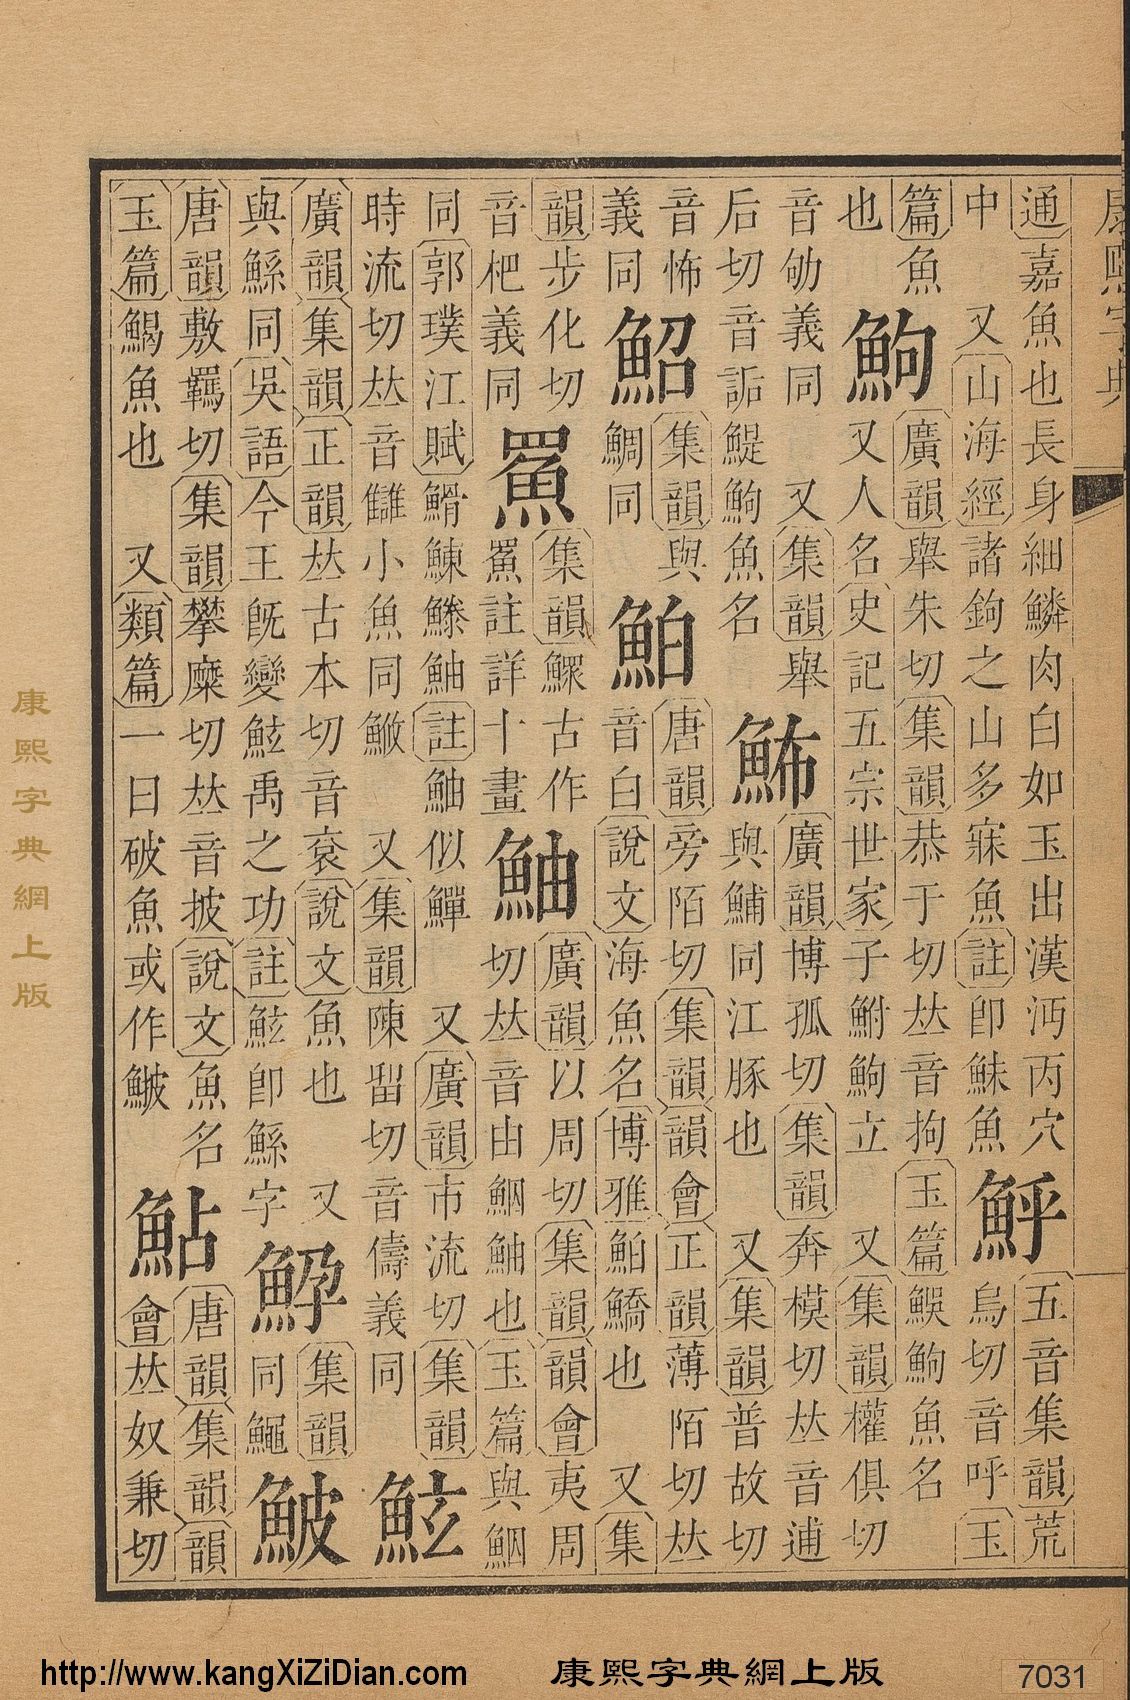 康熙字典
通嘉魚也長身細鱗肉白如玉出漢沔丙穴
中 又山海經諸鉤之山多寐魚註卽鮇魚
五音集韻荒
烏切音呼玉
篇魚
也
鮈
廣韻舉朱切集韻恭于切𠀤音拘玉篇鮈魚名
又人名史記五宗世家子鮒鮈立 又集韻權俱切
音劬義同 又集韻舉
后切音詬鯷鮈魚名
䰽
廣韻博孤切集韻奔模切𠀤音逋
與鯆同江豚也 又集韻普故切
音怖
義同
鮉
集韻與
鯛同
鮊
唐韻旁陌切集韻韻會正韻薄陌切𠀤
音白說文海魚名博雅鮊鱎也 又集
韻步化切
音杷義同
集韻鰥古作
註詳十畫
鮋
廣韻以周切集韻韻會夷周
切𠀤音由鮂鮋也玉篇與鮂
同郭璞江賦䱻鰊鰧鮋註鮋似鱓 又廣韻市流切集韻
時流切𠀤音讎小魚同 又集韻陳畱切音儔義同
鮌
廣韻集韻正韻𠀤古本切音袞說文魚也 又
與鯀同吳語今王旣變鮌禹之功註鮌卽鯀字
䱆
集韻
同鱦
鮍
唐韻敷羈切集韻攀糜切𠀤音披說文魚名
玉篇魚也 又類篇一曰破魚或作
鮎
唐韻集韻韻
會𠀤奴兼切
康熙字典網上版
http://www.kangXiZiDian.com
康熙字典網上版
7031